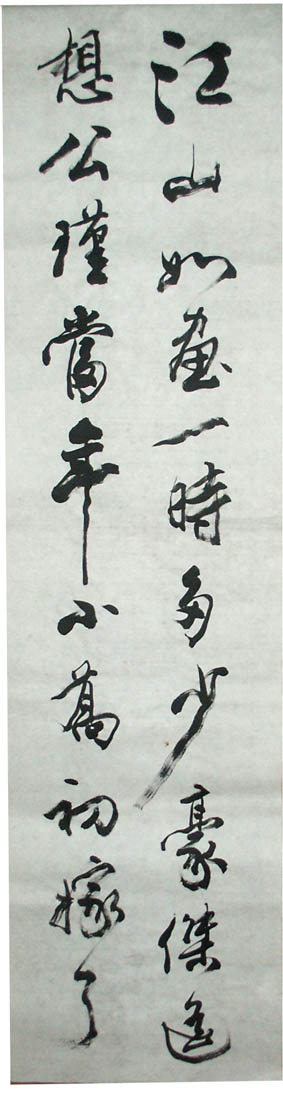 江山如畫一時多少豪傑遙
想公瑾當年小喬初嫁了